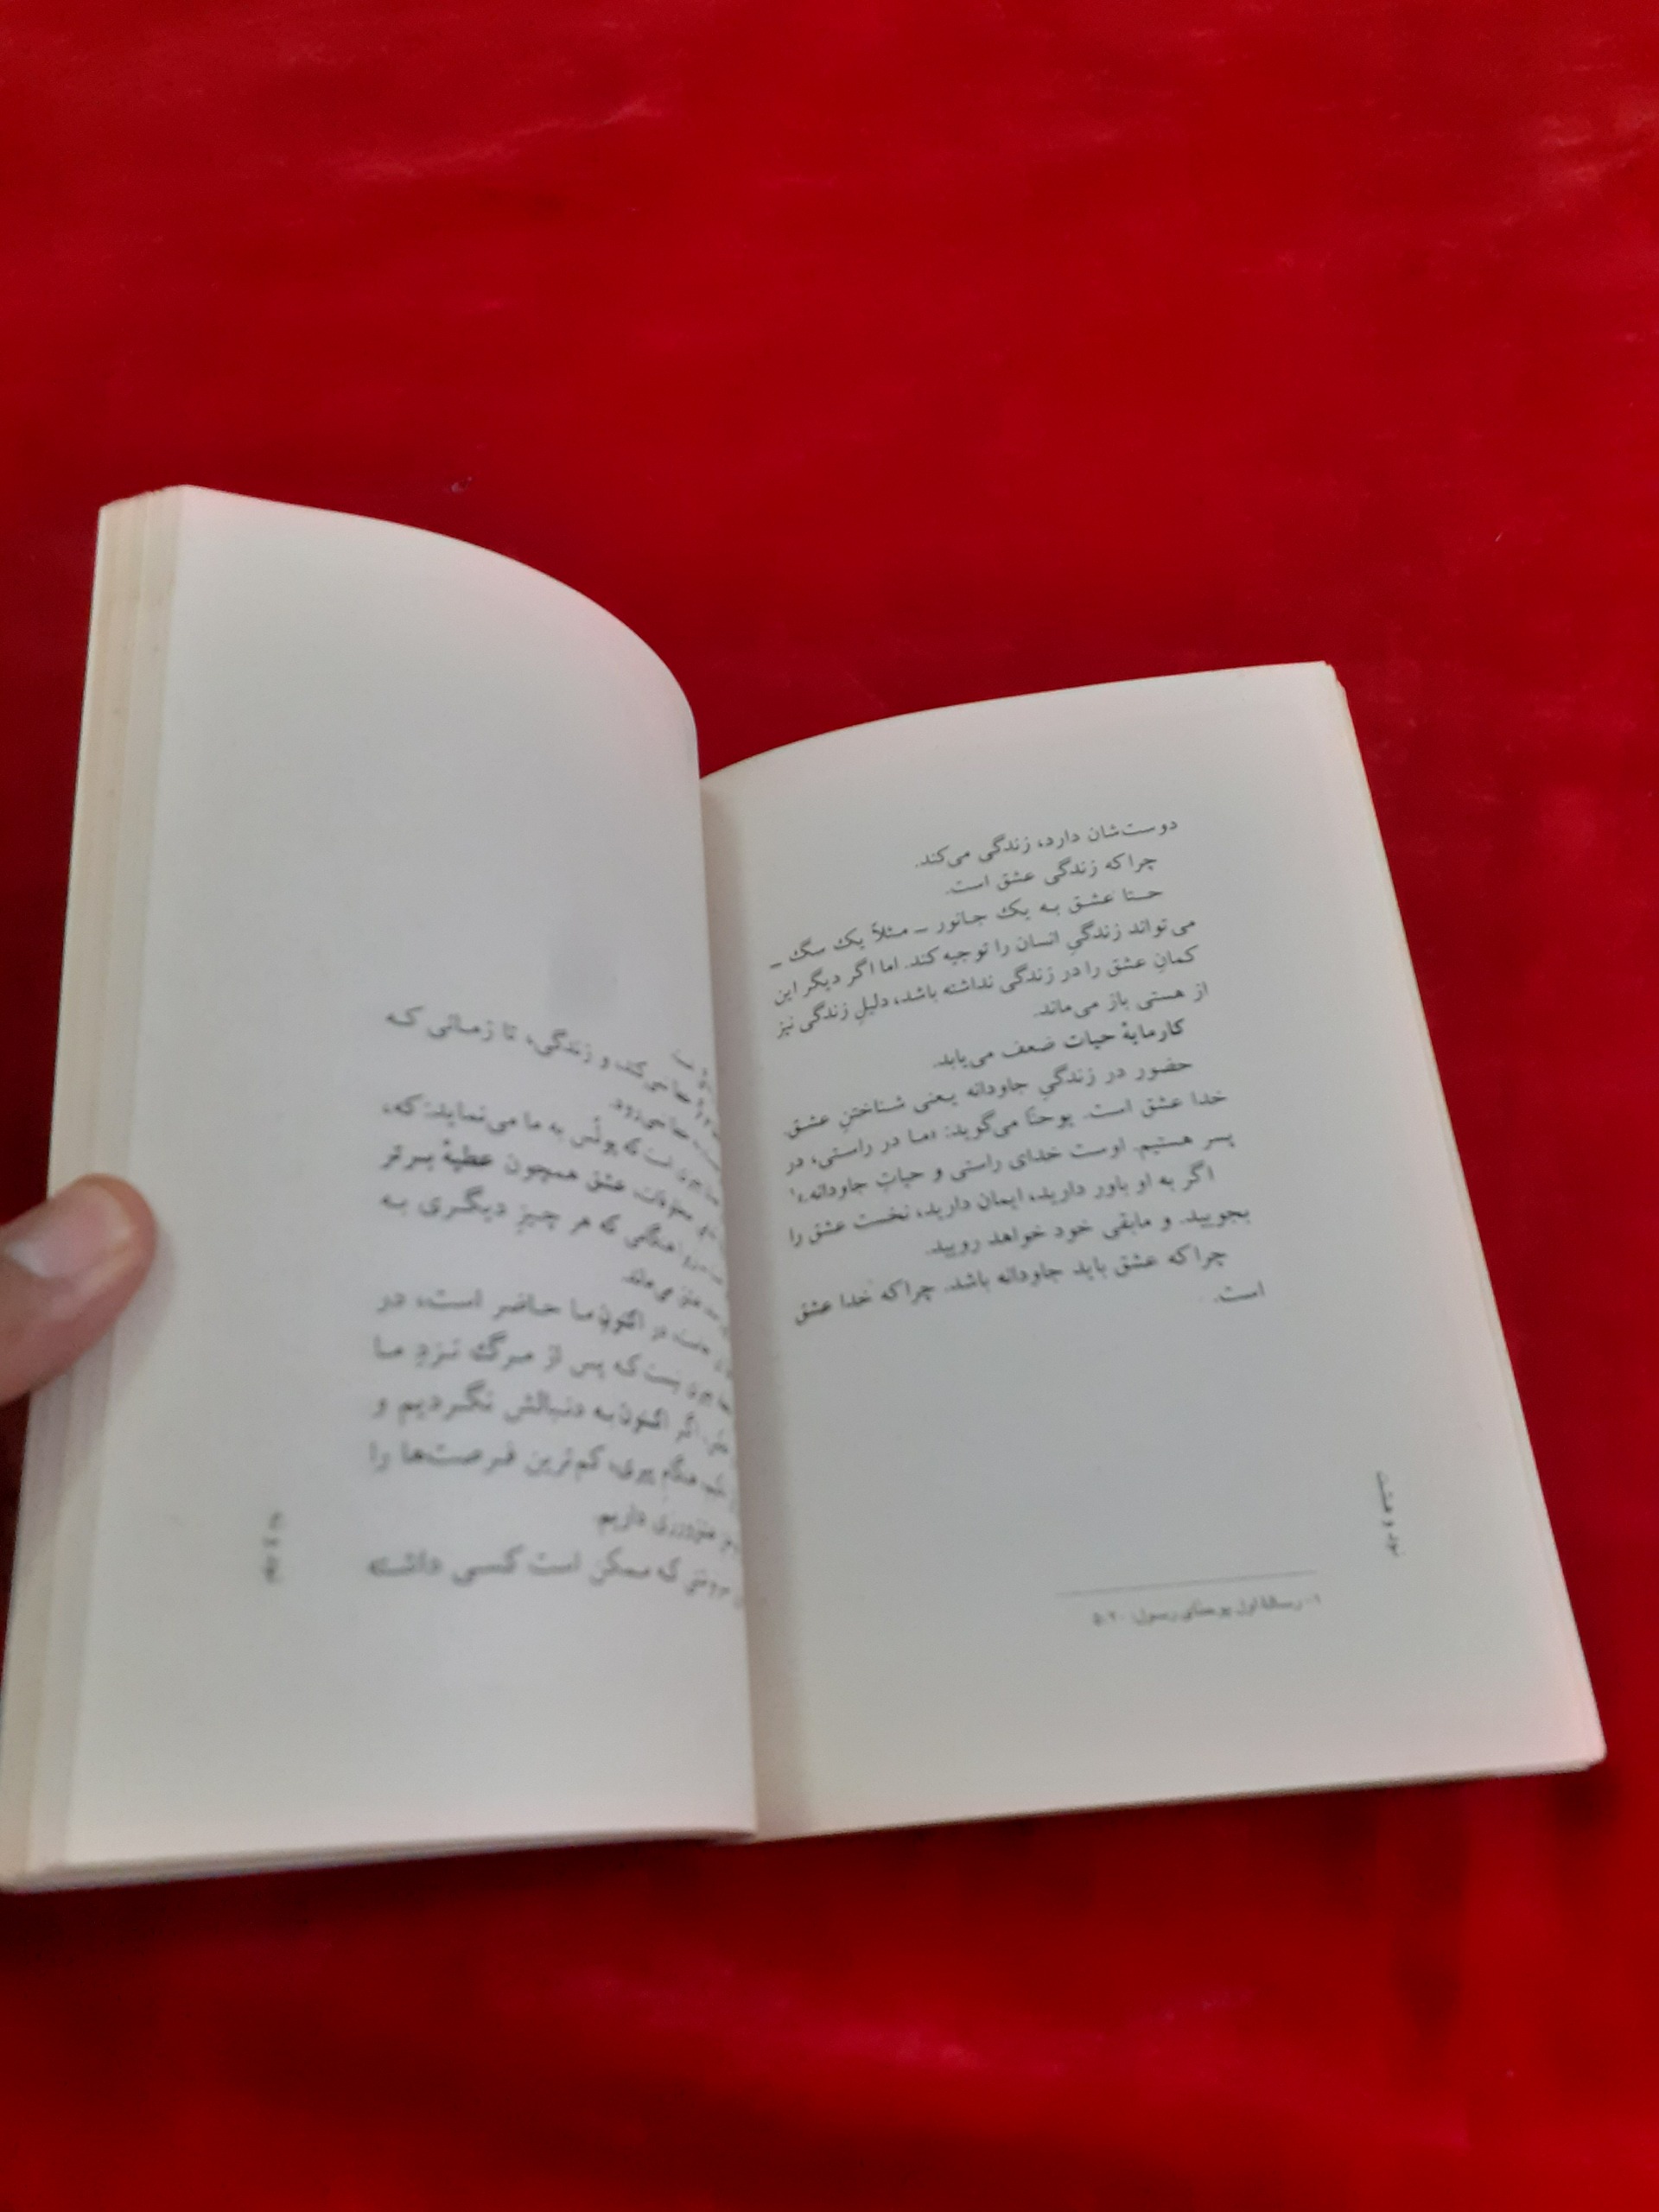 دوست‌شان دارد، زندگی می‌کند.
چراکه زندگی عشق است.
حتا عشق به یک جانور ــ مثلاً یک سگ ــ
می‌تواند زندگیِ انسان را توجیه کند. اما اگر دیگر این
کمانِ عشق را در زندگی نداشته باشد، دلیلِ زندگی نیز
از هستی باز می‌ماند.
کارمایهٔ حیات ضعف می‌یابد.
حضور در زندگیِ جاودانه یعنی شناختنِ عشق.
خدا عشق است. یوحنّا می‌گوید: «ما در راستی، در
پسر هستیم. اوست خدای راستی و حیاتِ جاودانه.»۱
اگر به او باور دارید، ایمان دارید، نخست عشق را
بجویید. و مابقی خود خواهد رویید.
چراکه عشق باید جاودانه باشد. چراکه خدا عشق
است.
۱- رسالهٔ اول یوحنای رسول، ۵:۲۰
نود و هشت
و زندگی، تا زمانی که
است که پولُس به ما می‌نماید: که،
عشق همچون عطیهٔ برتر
هنگامی که هر چیزِ دیگری به
عشق می‌ماند.
در اکنونِ ما حاضر است، در
نیست که پس از مرگ نزدِ ما
اگر اکنون به دنبالش نگردیم و
هنگامِ پیری، کم‌ترین فرصت‌ها را
عشق‌ورزی داریم.
که ممکن است کسی داشته